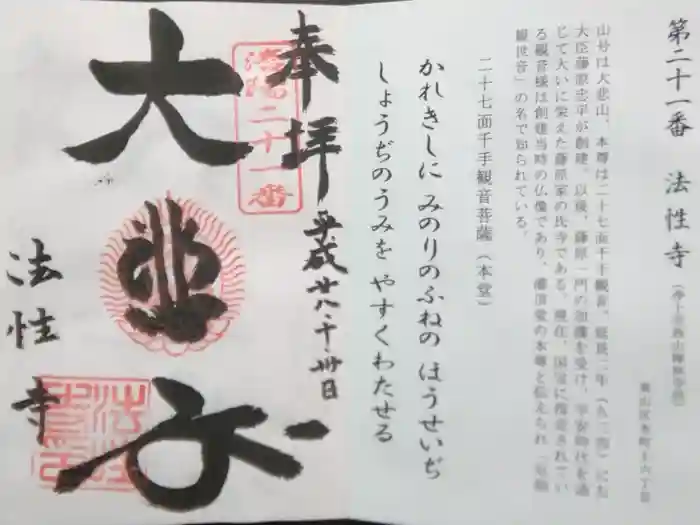 第二十一番 法性寺（浄土宗西山禅林寺派）
東山区本町十六丁目
山号は大悲山、本尊は二十七面千手観音。延長二年（九二四）に左
大臣藤原忠平が創建、以後、藤原一門の加護を受け、平安時代を通
じて大いに栄えた藤原家の氏寺である。現在、国宝に指定されてい
る観音様は創建当時の仏像であり、灌頂堂の本尊と伝えられ「厄除
観世音」の名で知られている。
二十七面千手観音菩薩（本堂）
かれきしに みのりのふねの ほうせいぢ
しょうぢのうみを やすくわたせる
奉拝 平成廿八・十・卅日
洛陽二十一番
大
法性寺